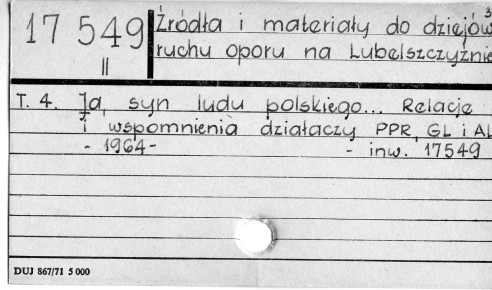 3
17 549
II
Źródła i materiały do dziejów
ruchu oporu na Lubelszczyźnie
T. 4. Ja, syn ludu polskiego... Relacje
i wspomnienia działaczy PPR, GL i AL
- 1964 - - inw. 17549
DUJ 867/71 5 000